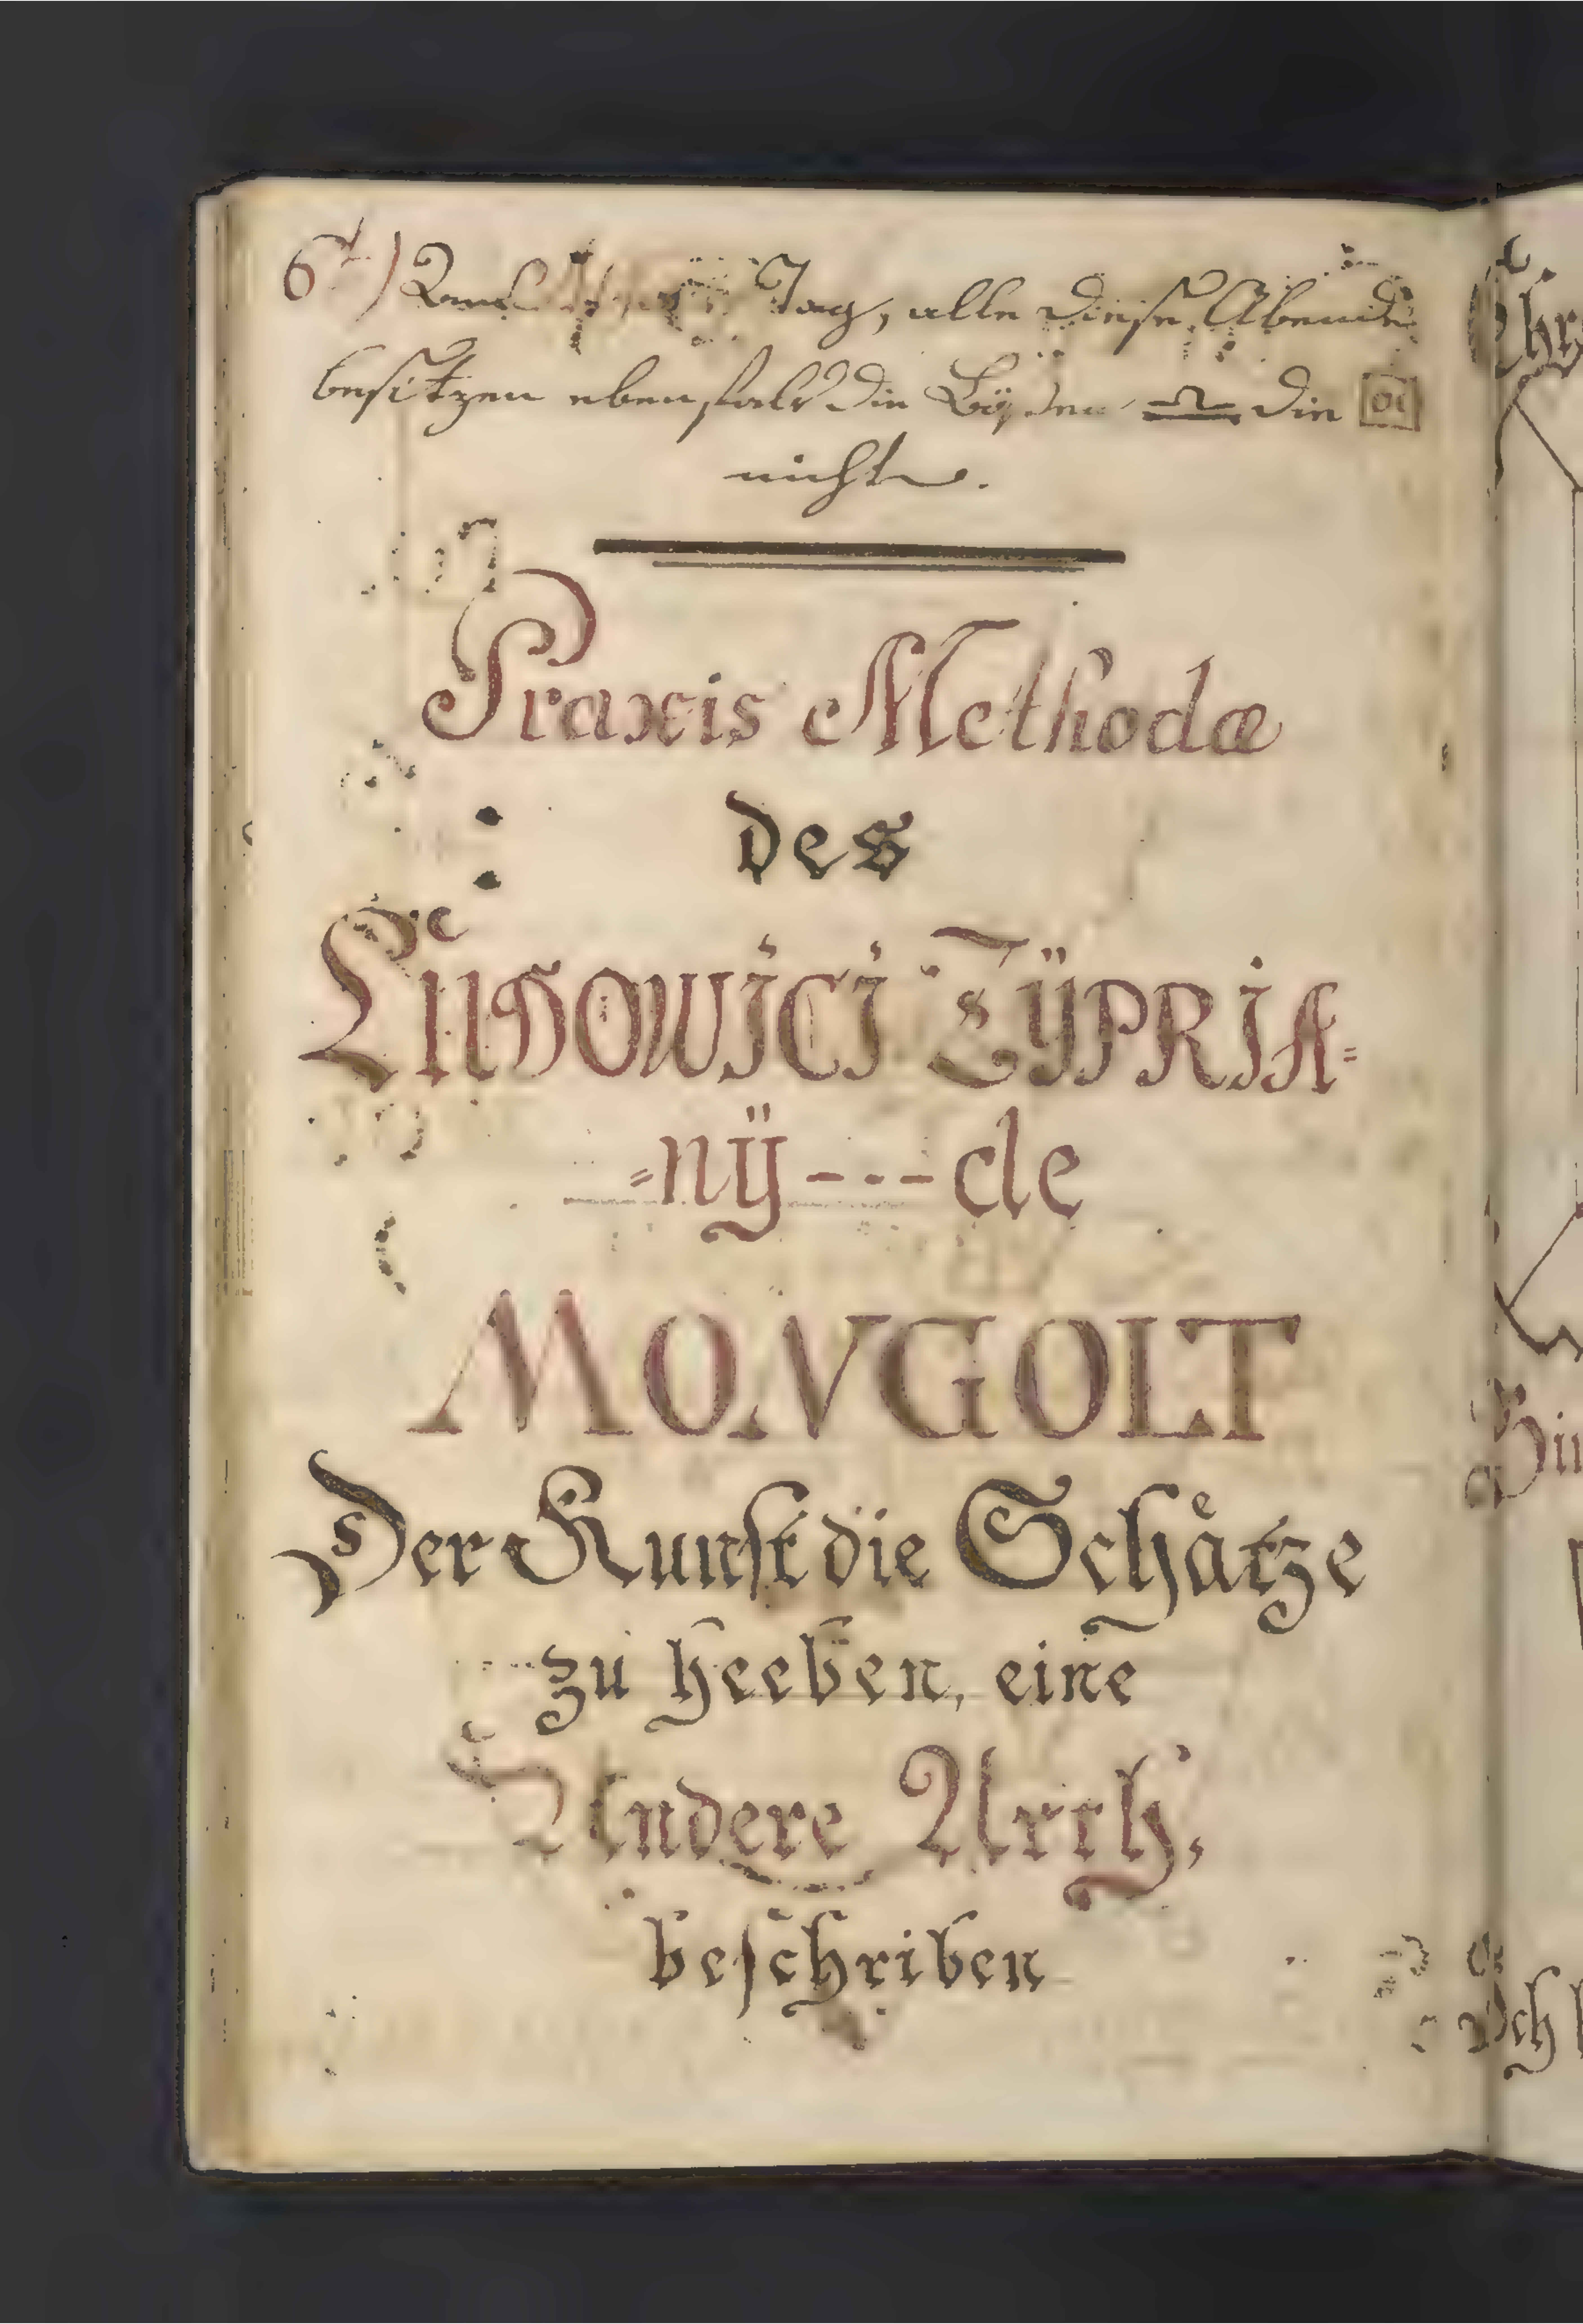 6t) Tag, alle diese Abende
besitzen ebenfals die ♎ die
nicht.
Praxis Methodæ
des
Ludowici Zÿpria=
=nÿ---de
MONGOLT
Der Kunst die Schätze
zu heeben, eine
Andere Arth,
beschriben